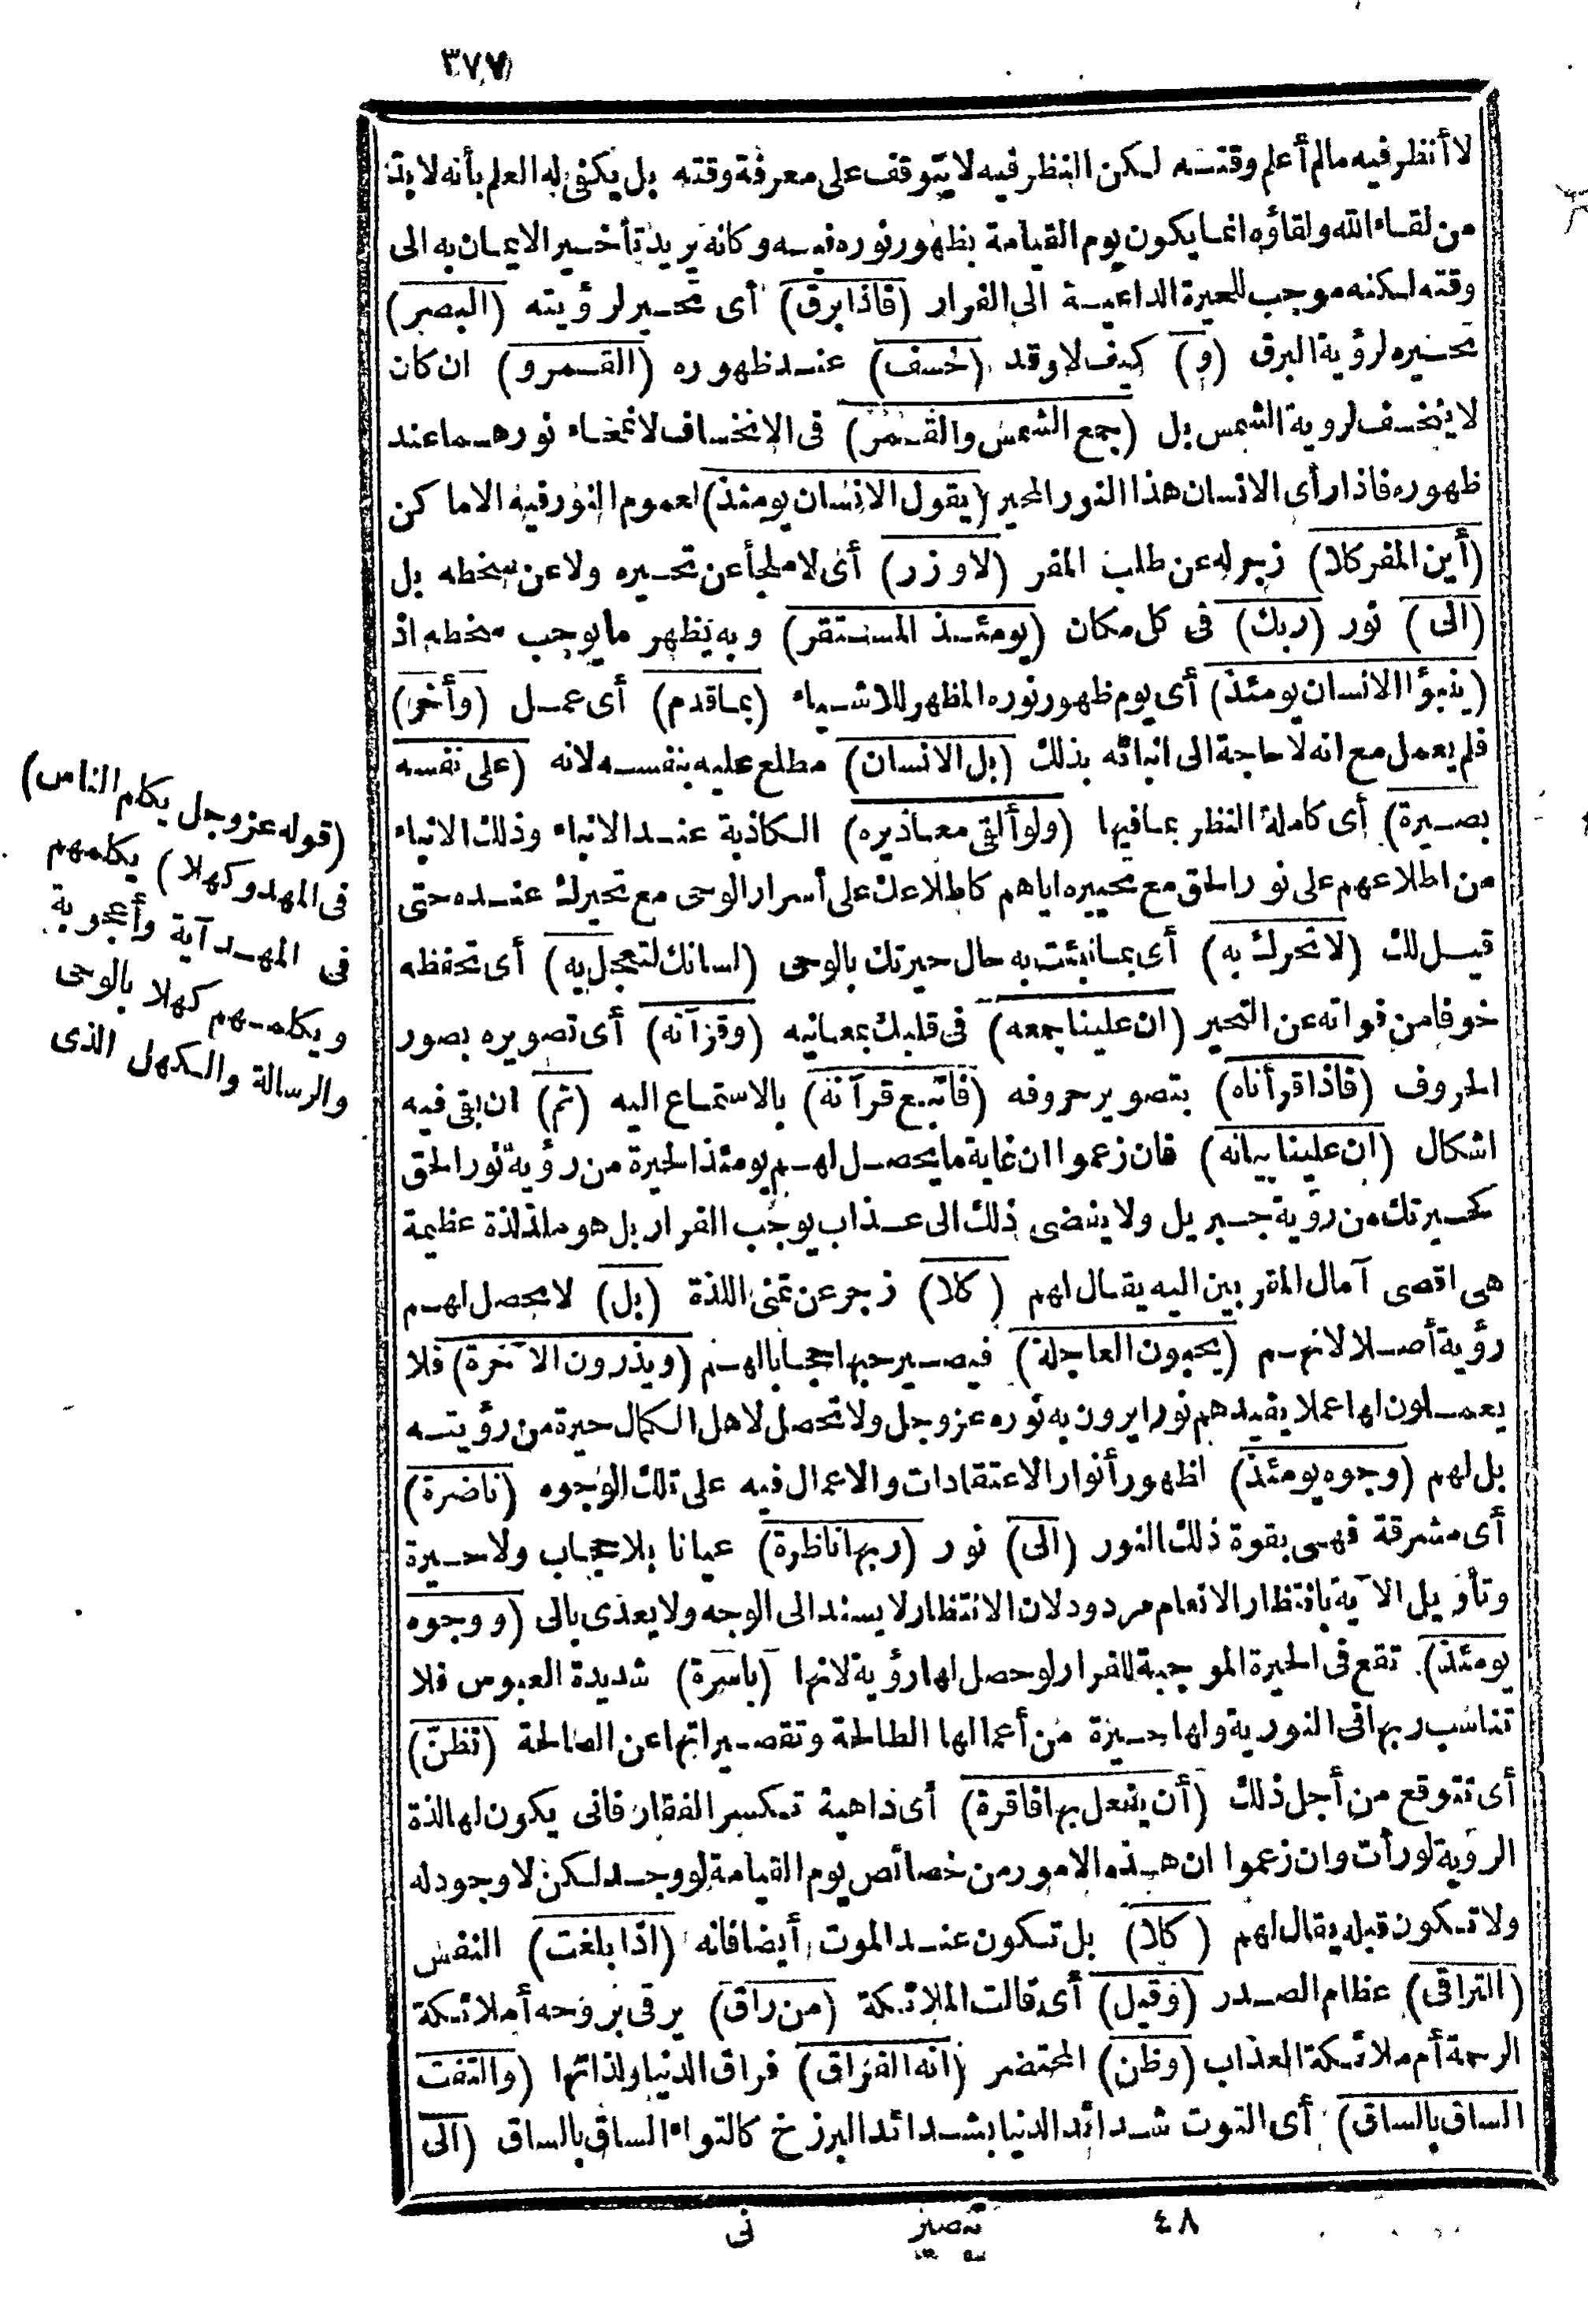 ٣٧٧
لا أنظر فيه ما لم أعلم وقته لكن النظر فيه لا يتوقف على معرفة وقته بل يكفى له العلم بأنه لا بد
من لقاء الله ولقاؤه انما يكون يوم القيامة بظهور نوره فيه وكانه يريد تأخير الايمان به الى
وقته لكنه موجب للحيرة الداعية الى الفرار (فاذا برق) أى تحير لرؤيته (البصر)
تحيره لرؤية البرق (و) كيف لا وقد (خسف) عند ظهوره (القمر و) ان كان
لا ينخسف لروية الشمس بل (جمع الشمس والقمر) فى الانخساف لانمحاء نورهما عند
ظهوره فاذا رأى الانسان هذا النور المحير (يقول الانسان يومئذ) لعموم النور فيه الاماكن
(أين المفر كلا) زجر له عن طلب المفر (لا وزر) أى لا ملجأ عن تحيره ولا عن سخطه بل
(الى) نور (ربك) فى كل مكان (يومئذ المستقر) وبه يظهر ما يوجب سخطه اذ
(ينبؤا الانسان يومئذ) أى يوم ظهور نوره المظهر للاشياء (بما قدم) أى عمل (وأخر)
فلم يعمل مع انه لا حاجة الى انبائه بذلك (بل الانسان) مطلع عليه بنفسه لانه (على نفسه
بصيرة) أى كاملة النظر بما فيها (ولو ألقى معاذيره) الكاذبة عند الانباء وذلك الانباء
من اطلاعهم على نور الحق مع تحييره اياهم كاطلاعك على أسرار الوحى مع تحيرك عنده حتى
قيل لك (لا تحرك به) أى بما نبئت به حال حيرتك بالوحى (لسانك لتعجل به) أى تحفظه
خوفا من فواته عن التحير (ان علينا جمعه) فى قلبك بمعانيه (وقرآنه) أى تصويره بصور
الحروف (فاذا قرأناه) بتصوير حروفه (فاتبع قرآنه) بالاستماع اليه (ثم) ان بقى فيه
اشكال (ان علينا بيانه) فان زعموا ان غاية ما يحصل لهم يومئذ الحيرة من رؤية نور الحق
كحيرتك من رؤية جبريل ولا يفضى ذلك الى عذاب يوجب الفرار بل هو ملذ لذة عظيمة
هى اقصى آمال المقربين اليه يقال لهم (كلا) زجر عن تمنى اللذة (بل) لا يحصل لهم
رؤية أصلا لانهم (يحبون العاجلة) فيصير حبها حجابا لهم (ويذرون الآخرة) فلا
يعملون لها عملا يفيدهم نورا يرون به نوره عز وجل ولا تحصل لاهل الكمال حيرة من رؤيته
بل لهم (وجوه يومئذ) لظهور أنوار الاعتقادات والاعمال فيه على تلك الوجوه (ناضرة)
أى مشرقة فهى بقوة ذلك النور (الى) نور (ربها ناظرة) عيانا بلا حجاب ولا حيرة
وتأويل الآية بانتظار الانعام مردود لان الانتظار لا يسند الى الوجه ولا يعدى بالى (ووجوه
يومئذ) تقع فى الحيرة الموجبة للفرار لو حصل لها رؤية لانها (باسرة) شديدة العبوس فلا
تناسب ربها فى النورية ولها حيرة من أعمالها الطالحة وتقصيراتها عن الصالحة (تظن)
أى تتوقع من أجل ذلك (أن يفعل بها فاقرة) أى داهية تكسر الفقار فانى يكون لها لذة
الروية لو رأت وان زعموا ان هذه الامور من خصائص يوم القيامة لو وجد لكن لا وجود له
ولا تكون قبله يقال لهم (كلا) بل تكون عند الموت أيضا فانه (اذا بلغت) النفس
(التراقى) عظام الصدر (وقيل) أى قالت الملائكة (من راق) يرقى بروحه أملائكة
الرحمة أم ملائكة العذاب (وظن) المحتضر (انه الفراق) فراق الدنيا ولذاتها (والتفت
الساق بالساق) أى التوت شدائد الدنيا بشدائد البرزخ كالتواء الساق بالساق (الى
(قوله عز وجل يكلم الناس)
فى المهد وكهلا) يكلمهم
فى المهد آية وأعجوبة
ويكلمهم كهلا بالوحى
والرسالة والكهل الذى
٤٨ تبصير نى